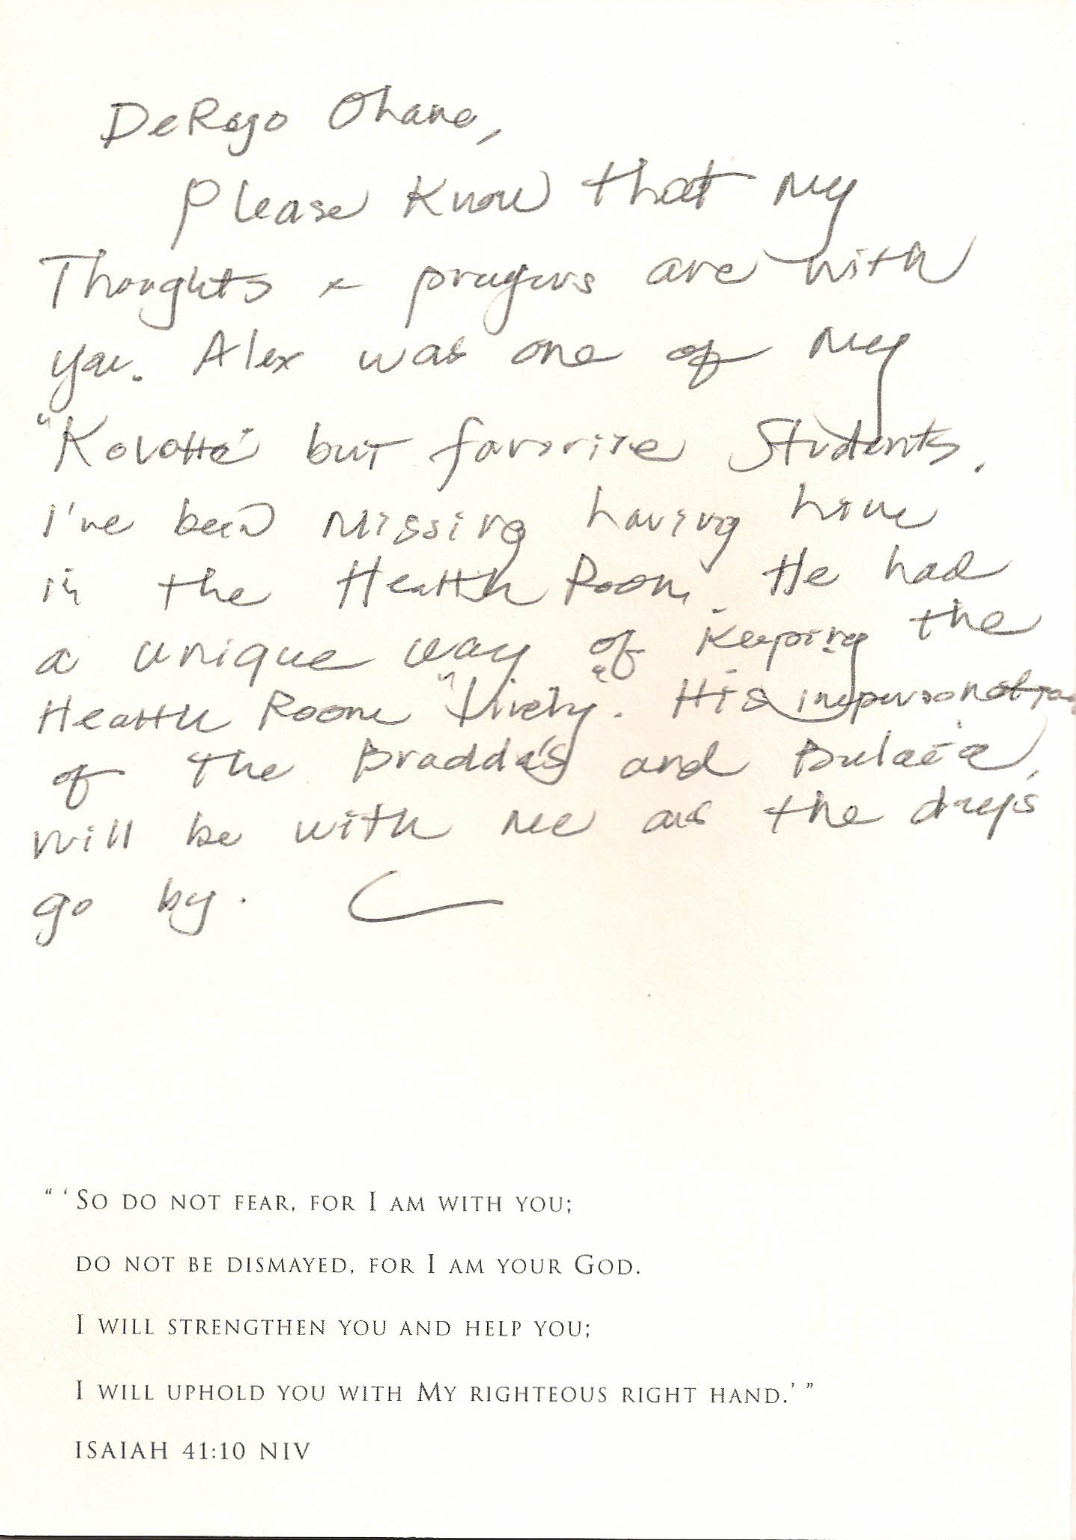 DeRego Ohana,
Please Know that My
Thoughts + prayers are with
you. Alex was one of My
"Kolohe" but favorite Students.
I've been Missing having him
in the Health Room. He had
a unique way of keeping the
Health Room "lively". His
of the Bradda's and
will be with me as the days
go by.
“ ‘SO DO NOT FEAR, FOR I AM WITH YOU;
DO NOT BE DISMAYED, FOR I AM YOUR GOD.
I WILL STRENGTHEN YOU AND HELP YOU;
I WILL UPHOLD YOU WITH MY RIGHTEOUS RIGHT HAND.’ ”
ISAIAH 41:10 NIV